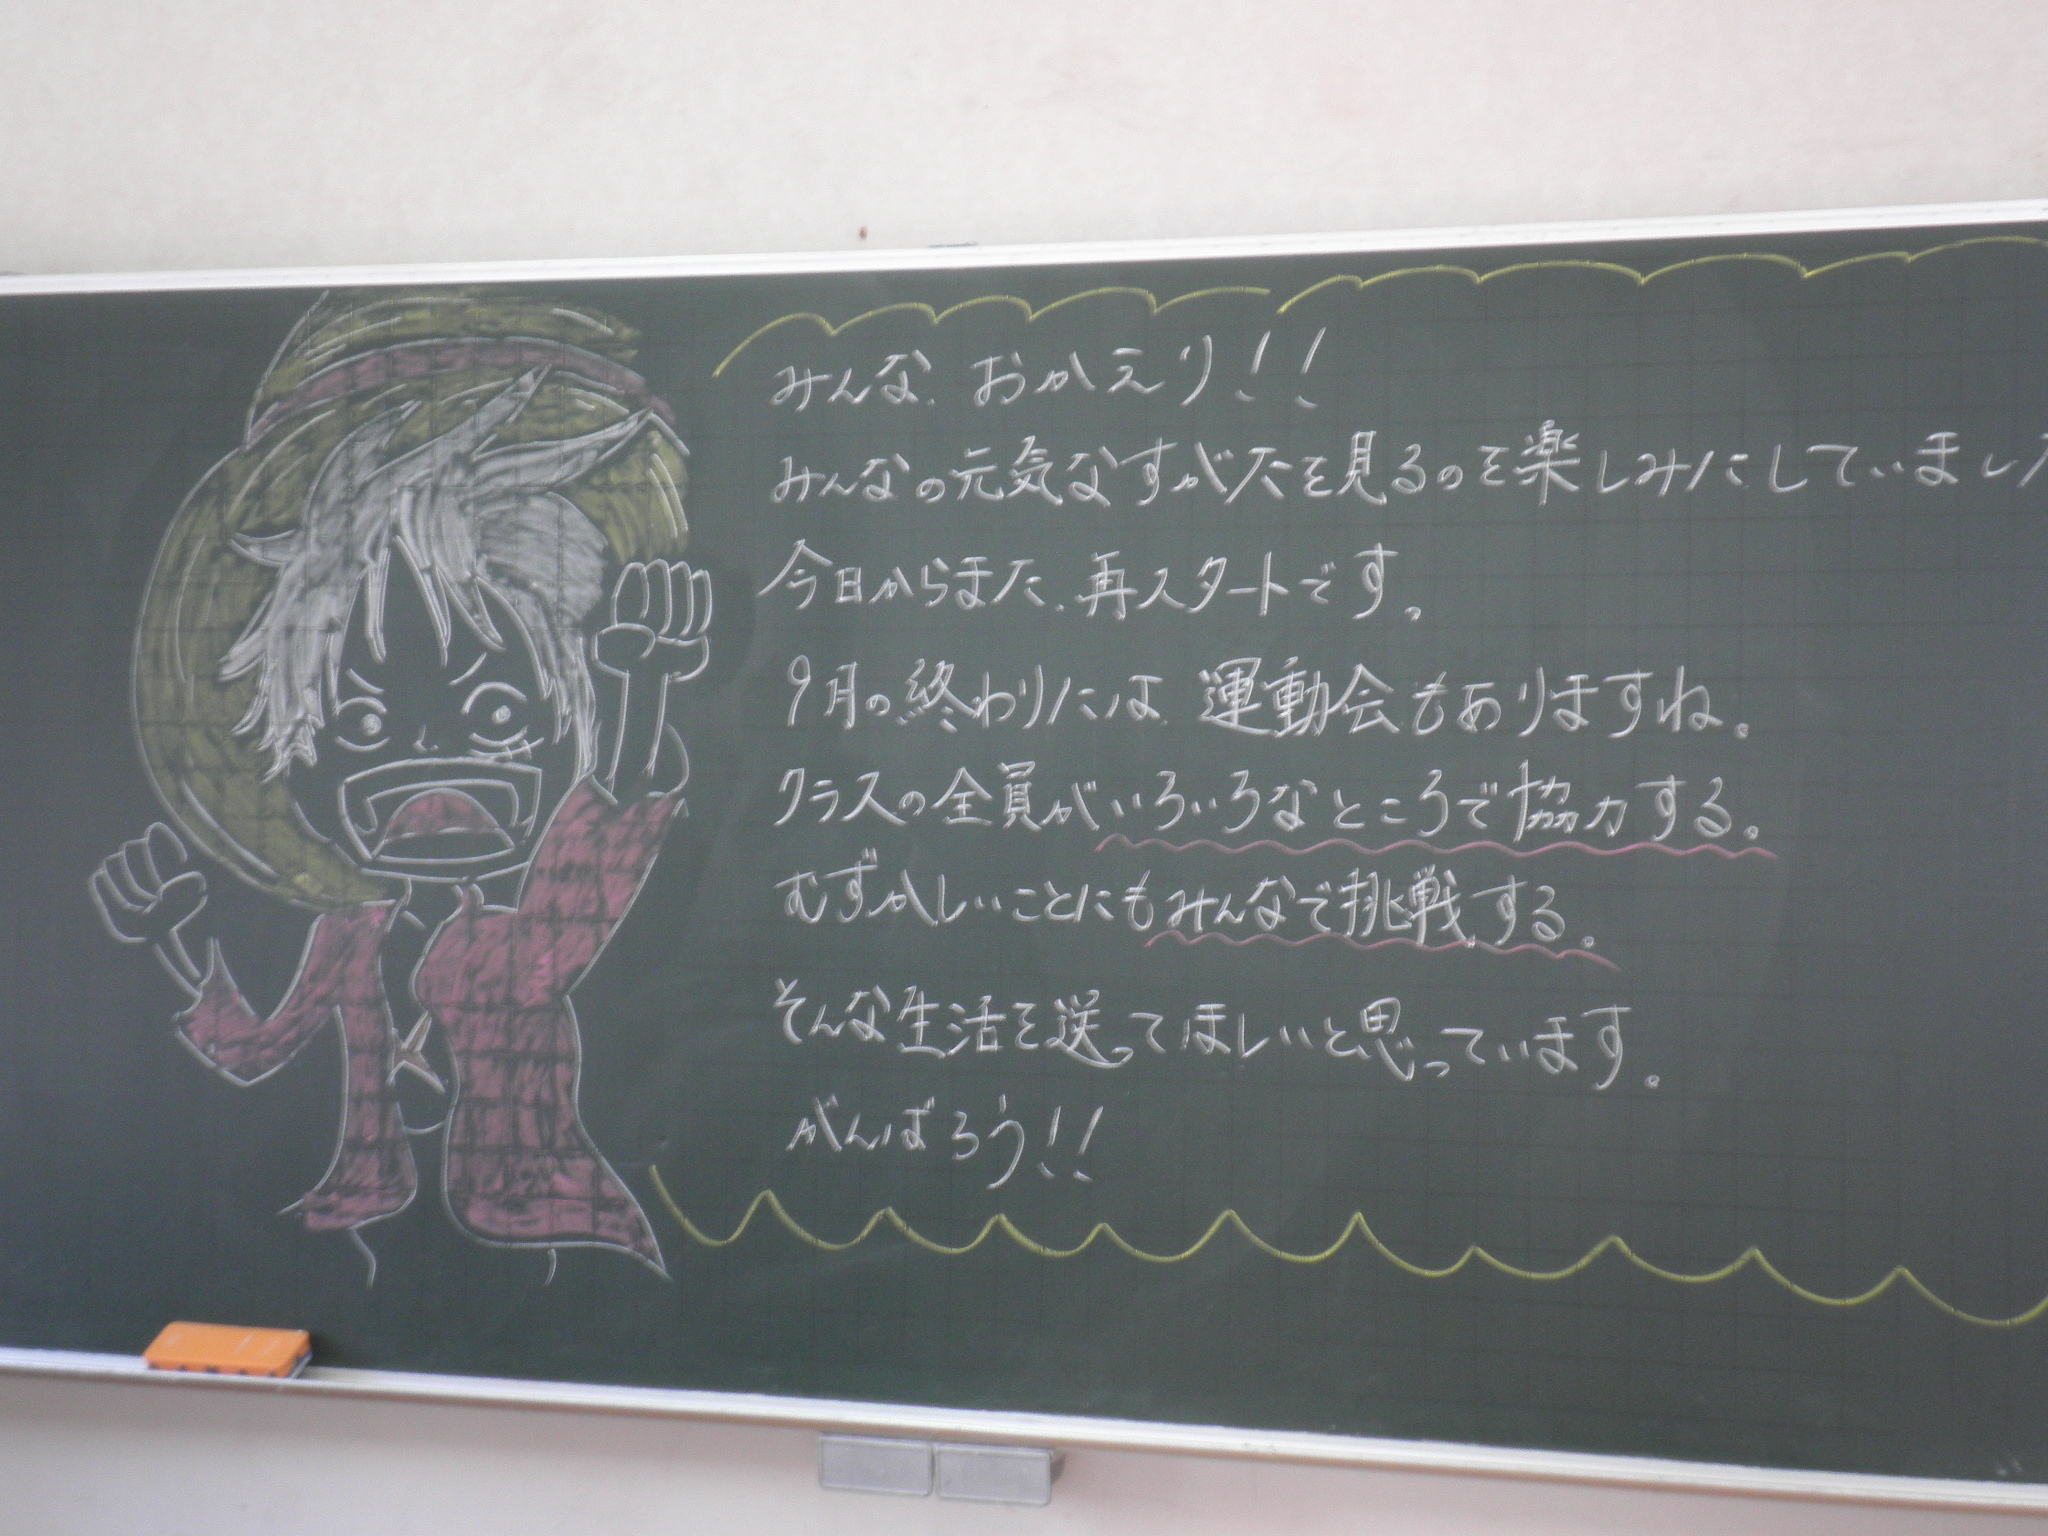 みんな、おかえり！！
みんなの元気なすがたを見るのを楽しみにしていました
今日からまた、再スタートです。
9月の終わりには、運動会もありますね。
クラスの全員がいろいろなところで協力する。
むずかしいことにもみんなで挑戦する。
そんな生活を送ってほしいと思っています。
がんばろう！！